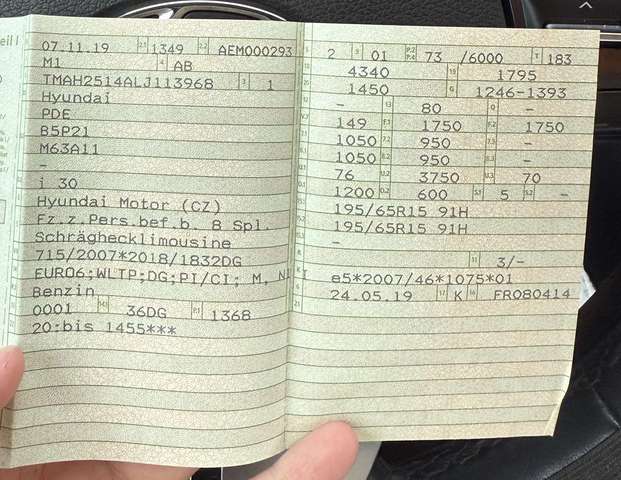 07.11.19 1349 AEM000293
M1 AB
TMAH2514ALJ113968 1
Hyundai
PDE
B5P21
M63A11
-
i 30
Hyundai Motor (CZ)
Fz.z.Pers.bef.b. 8 Spl.
Schräghecklimousine
715/2007*2018/1832DG
EURO6;WLTP;DG;PI/CI; M, N1 I
Benzin
0001 36DG 1368
20:bis 1455***
2 01 P.2 P.4 73 /6000 T 183
4340 1795
1450 G 1246-1393
- 80 -
149 1750 1750
1050 950 -
1050 950 -
76 3750 70
1200 600 5 -
195/65R15 91H
195/65R15 91H
-
3/-
e5*2007/46*1075*01
24.05.19 K FR080414